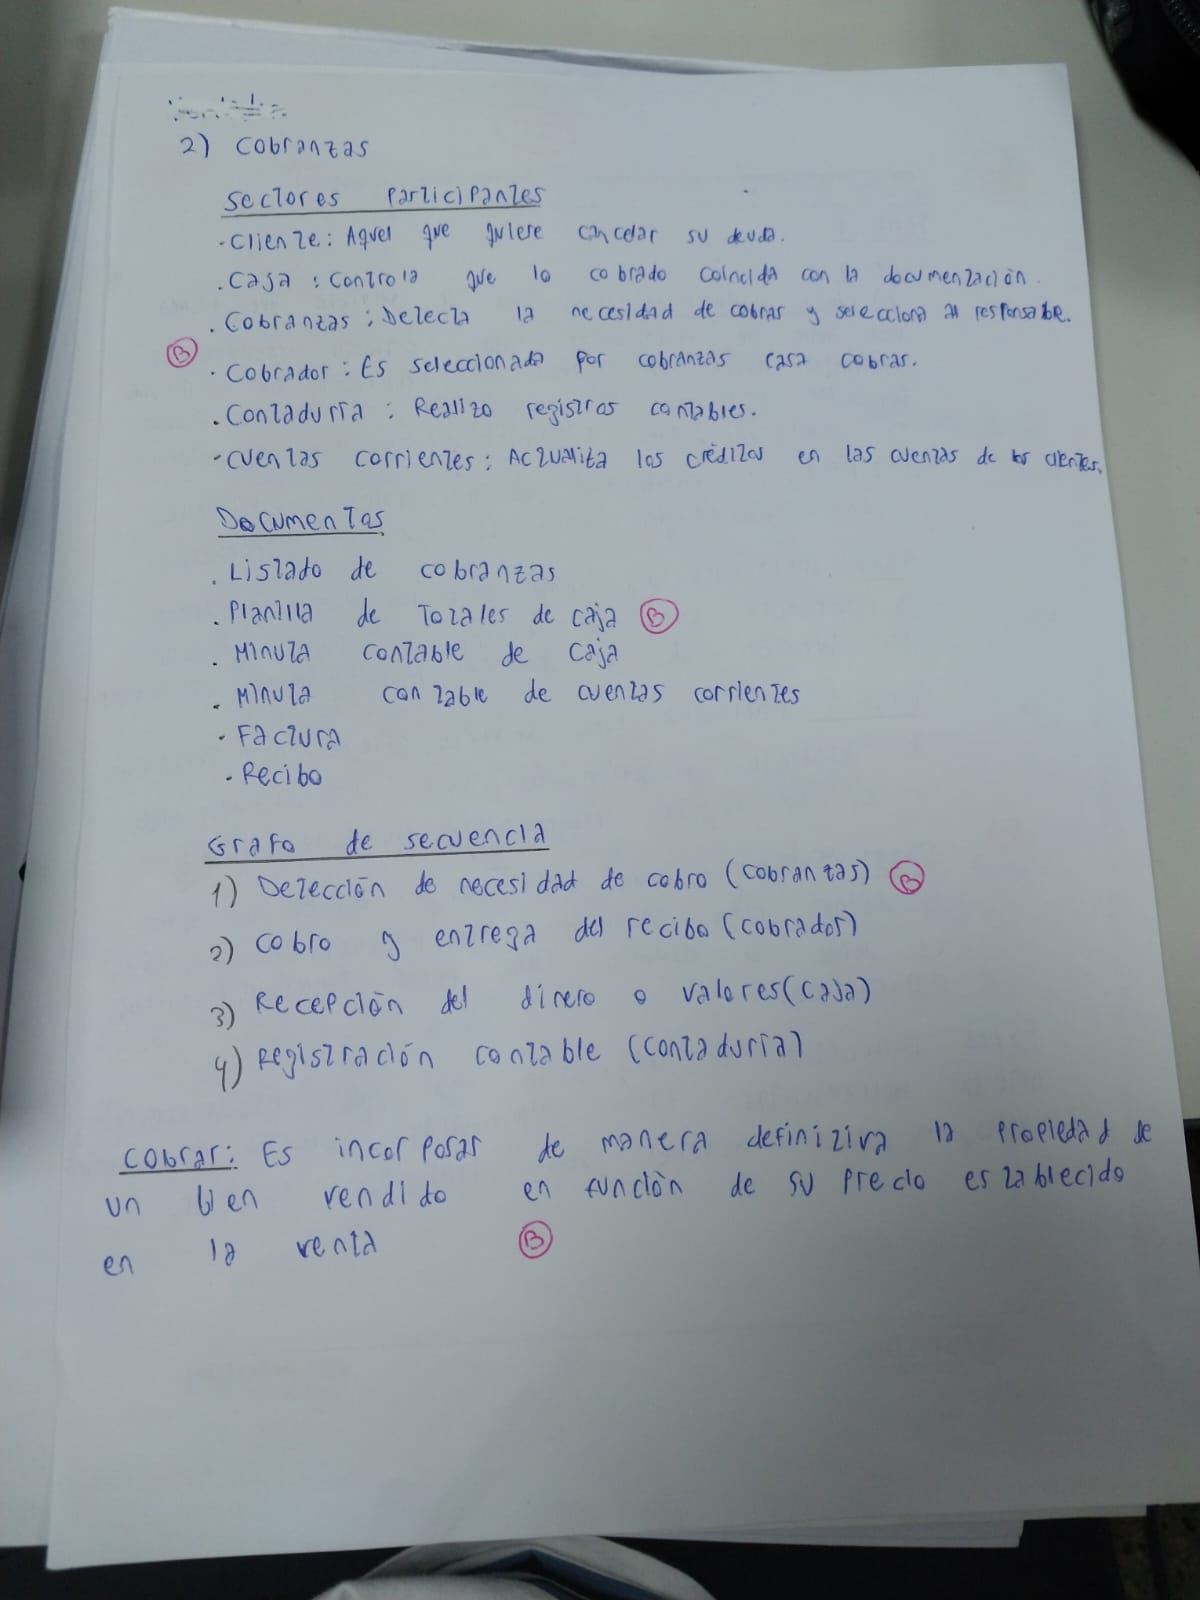 2) Cobranzas
Sectores Participantes
· Cliente: Aquel que quiere cancelar su deuda.
. Caja : Controla que lo cobrado coincida con la documentación.
. Cobranzas : Detecta la necesidad de cobrar y selecciona al responsable.
B
· Cobrador : Es seleccionada por cobranzas casa cobras.
. Contaduría : Realizo registros contables.
· Cuentas corrientes : Actualiza los créditos en las cuentas de los clientes.
Documentos
. Listado de cobranzas
. Planilla de Totales de caja B
. Minuta contable de caja
. Minuta contable de cuentas corrientes
· Factura
· Recibo
Grafo de secuencia
1) Detección de necesidad de cobro (cobranzas) B
2) Cobro y entrega del recibo (cobrador)
3) Recepción del dinero o valores (caja)
4) Registración contable (contaduría)
Cobrar: Es incorporar de manera definitiva la propiedad de
un bien vendido en función de su precio establecido
en la venta B